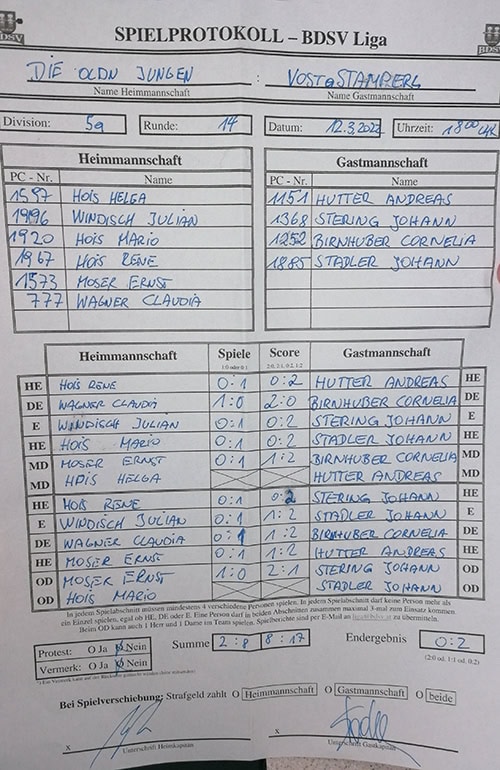 SPIELPROTOKOLL – BDSV Liga
DIE OLDN JUNGEN : VOSTASTAMPERL
Name Heimmannschaft Name Gastmannschaft
Division: 5a Runde: 14 Datum: 12.3.2022 Uhrzeit: 18 00 Uhr
Heimmannschaft Gastmannschaft
PC - Nr. Name PC - Nr. Name
1597 HOIS HELGA 1151 HUTTER ANDREAS
1996 WINDISCH JULIAN 1368 STERING JOHANN
1920 HOIS MARIO 1252 BIRNHUBER CORNELIA
1967 HOIS RENE 1885 STADLER JOHANN
1573 MOSER ERNST
777 WAGNER CLAUDIA
Heimmannschaft Spiele Score Gastmannschaft
1:0 oder 0:1 2:0, 2:1, 0:2, 1:2
HE HOIS RENE 0:1 0:2 HUTTER ANDREAS HE
DE WAGNER CLAUDIA 1:0 2:0 BIRNHUBER CORNELIA DE
E WINDISCH JULIAN 0:1 0:2 STERING JOHANN E
HE HOIS MARIO 0:1 0:2 STADLER JOHANN HE
MD MOSER ERNST 0:1 1:2 BIRNHUBER CORNELIA MD
MD HOIS HELGA HUTTER ANDREAS MD
HE HOIS RENE 0:1 0:2 STERING JOHANN HE
E WINDISCH JULIAN 0:1 1:2 STADLER JOHANN E
DE WAGNER CLAUDIA 0:1 1:2 BIRNHUBER CORNELIA DE
HE MOSER ERNST 0:1 1:2 HUTTER ANDREAS HE
OD MOSER ERNST 1:0 2:1 STERING JOHANN OD
OD HOIS MARIO STADLER JOHANN OD
In jedem Spielabschnitt müssen mindestens 4 verschiedene Personen spielen. In jedem Spielabschnitt darf keine Person mehr als
ein Einzel spielen, egal ob HE, DE oder E. Eine Person darf in beiden Abschnitten zusammen maximal 3-mal zum Einsatz kommen.
Beim OD kann auch 1 Herr und 1 Dame im Team spielen. Spielberichte sind per E-Mail an zu übermitteln.
Protest: O Ja O Nein Summe 2:8 8:17 Endergebnis 0:2
Vermerk: O Ja O Nein (2:0 od. 1:1 od. 0:2)
Bei Spielverschiebung: Strafgeld zahlt O Heimmannschaft O Gastmannschaft O beide
x x
Unterschrift Heimkapitän Unterschrift Gastkapitän